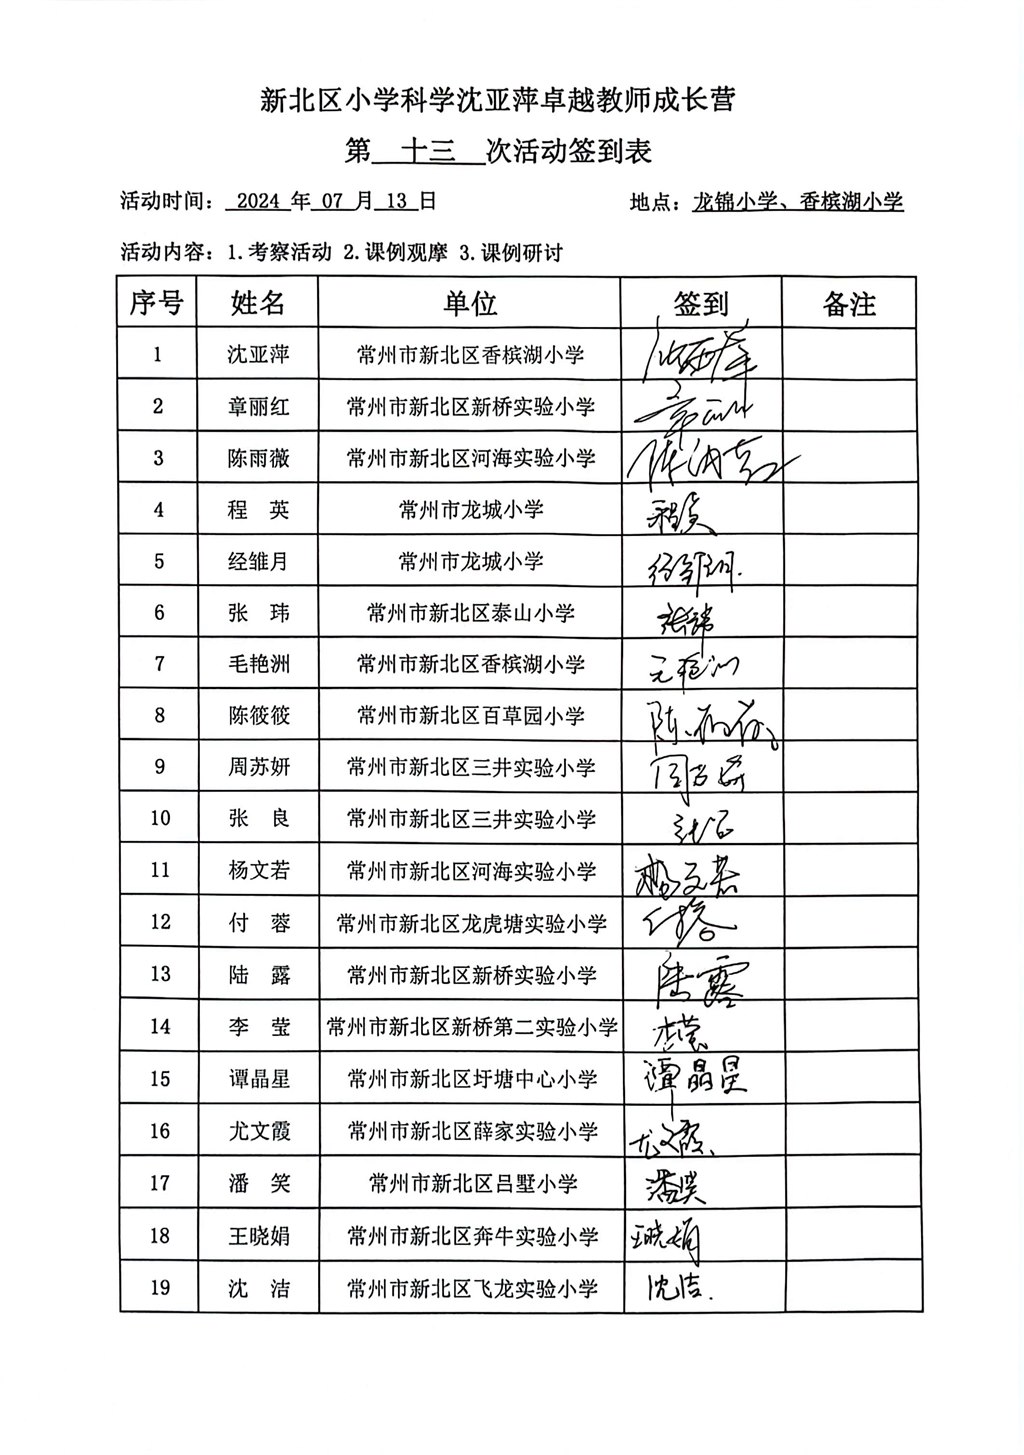 新北区小学科学沈亚萍卓越教师成长营
第 十三 次活动签到表
活动时间: 2024 年 07 月 13 日 地点: 龙锦小学、香槟湖小学
活动内容: 1.考察活动 2.课例观摩 3.课例研讨
序号 姓名 单位 签到 备注
1 沈亚萍 常州市新北区香槟湖小学 沈亚萍
2 章丽红 常州市新北区新桥实验小学 章丽红
3 陈雨薇 常州市新北区河海实验小学
4 程 英 常州市龙城小学 程英
5 经雏月 常州市龙城小学 经雏月.
6 张 玮 常州市新北区泰山小学 张玮
7 毛艳洲 常州市新北区香槟湖小学 毛艳洲
8 陈筱筱 常州市新北区百草园小学 陈筱筱
9 周苏妍 常州市新北区三井实验小学 周苏妍
10 张 良 常州市新北区三井实验小学 张良
11 杨文若 常州市新北区河海实验小学 杨文若
12 付 蓉 常州市新北区龙虎塘实验小学 付蓉
13 陆 露 常州市新北区新桥实验小学 陆露
14 李 莹 常州市新北区新桥第二实验小学 李莹
15 谭晶星 常州市新北区圩塘中心小学 谭晶星
16 尤文霞 常州市新北区薛家实验小学 尤文霞
17 潘 笑 常州市新北区吕墅小学 潘笑
18 王晓娟 常州市新北区奔牛实验小学 王晓娟
19 沈 洁 常州市新北区飞龙实验小学 沈洁.